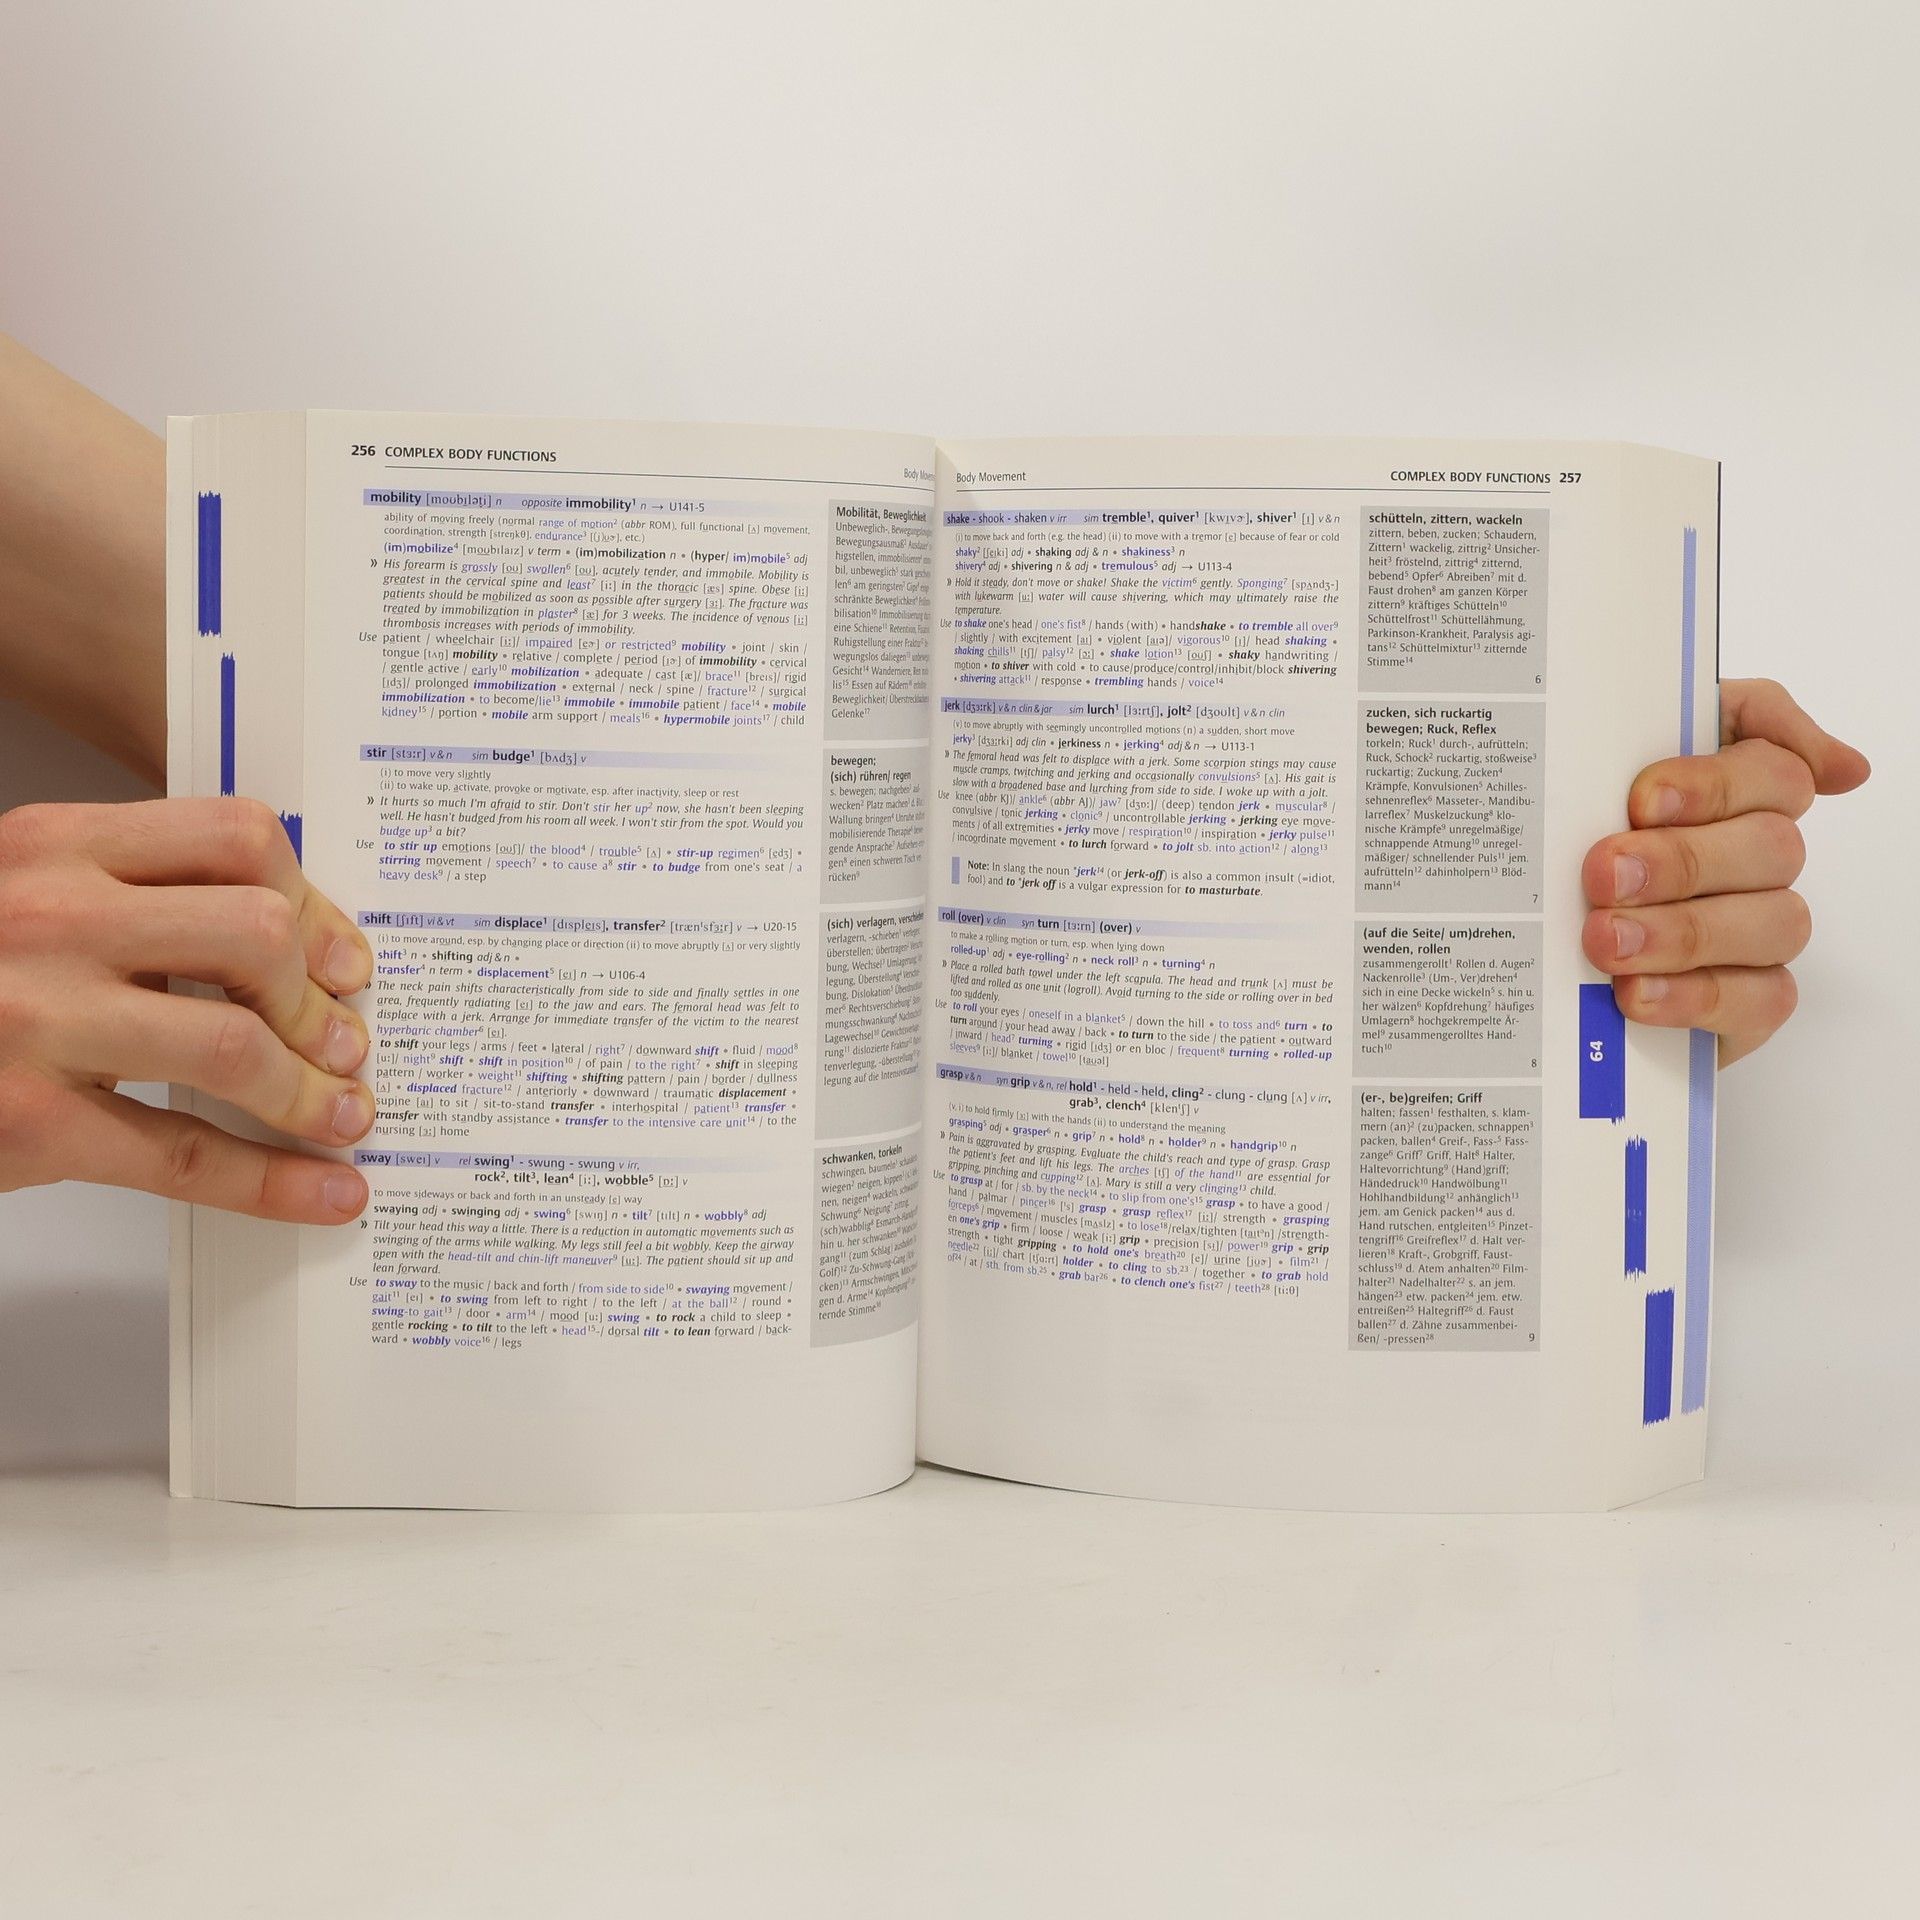 256 COMPLEX BODY FUNCTIONS
Body
mobility [moʊbɪləti] n opposite immobility¹ n → U141-5
ability of moving freely (normal range of motion² (abbr ROM), full functional [ʌ] movement,
coordination, strength [streŋkθ], endurance³ [(j)ʊɚ], etc.)
(im)mobilize⁴ [moʊbɪlaɪz] v term • (im)mobilization n • (hyper/ im)mobile⁵ adj
» His forearm is grossly [oʊ] swollen⁶ [oʊ], acutely tender, and immobile. Mobility is
greatest in the cervical spine and least⁷ [iː] in the thoracic [æs] spine. Obese [iː]
patients should be mobilized as soon as possible after surgery [ɜː]. The fracture was
treated by immobilization in plaster⁸ [æ] for 3 weeks. The incidence of venous [iː]
thrombosis increases with periods of immobility.
Use patient / wheelchair [iː]/ impaired [eɚ] or restricted⁹ mobility • joint / skin /
tongue [tʌŋ] mobility • relative / complete / period [ɪɚ] of immobility • cervical
/ gentle active / early¹⁰ mobilization • adequate / cast [æ]/ brace¹¹ [breɪs]/ rigid
[ɪdʒ]/ prolonged immobilization • external / neck / spine / fracture¹² / surgical
immobilization • to become/lie¹³ immobile • immobile patient / face¹⁴ • mobile
kidney¹⁵ / portion • mobile arm support / meals¹⁶ • hypermobile joints¹⁷ / child
Mobilität, Beweglichkeit
Gelenke¹⁷
stir [stɜːr] v & n sim budge¹ [bʌdʒ] v
(i) to move very slightly
(ii) to wake up, activate, provoke or motivate, esp. after inactivity, sleep or rest
» It hurts so much I'm afraid to stir. Don't stir her up² now, she hasn't been sleeping
well. He hasn't budged from his room all week. I won't stir from the spot. Would you
budge up³ a bit?
Use to stir up emotions [oʊʃ]/ the blood⁴ / trouble⁵ [ʌ] • stir-up regimen⁶ [edʒ] •
stirring movement / speech⁷ • to cause a⁸ stir • to budge from one's seat / a
heavy desk⁹ / a step
bewegen;
(sich) rühren/ regen
rücken⁹
shift [ʃɪft] vi & vt sim displace¹ [dɪspleɪs], transfer² [trænˈsfɜːr] v → U20-15
(i) to move around, esp. by changing place or direction (ii) to move abruptly [ʌ] or very slightly
shift³ n • shifting adj & n •
transfer⁴ n term • displacement⁵ [eɪ] n → U106-4
» The neck pain shifts characteristically from side to side and finally settles in one
area, frequently radiating [eɪ] to the jaw and ears. The femoral head was felt to
displace with a jerk. Arrange for immediate transfer of the victim to the nearest
hyperbaric chamber⁶ [eɪ].
to shift your legs / arms / feet • lateral / right⁷ / downward shift • fluid / mood⁸
[uː]/ night⁹ shift • shift in position¹⁰ / of pain / to the right⁷ • shift in sleeping
pattern / worker • weight¹¹ shifting • shifting pattern / pain / border / dullness
[ʌ] • displaced fracture¹² / anteriorly • downward / traumatic displacement •
supine [aɪ] to sit / sit-to-stand transfer • interhospital / patient¹³ transfer •
transfer with standby assistance • transfer to the intensive care unit¹⁴ / to the
nursing [ɜː] home
(sich) verlagern,
sway [sweɪ] v rel swing¹ - swung - swung v irr,
rock², tilt³, lean⁴ [iː], wobble⁵ [ɒː] v
to move sideways or back and forth in an unsteady [e] way
swaying adj • swinging adj • swing⁶ [swɪŋ] n • tilt⁷ [tɪlt] n • wobbly⁸ adj
» Tilt your head this way a little. There is a reduction in automatic movements such as
swinging of the arms while walking. My legs still feel a bit wobbly. Keep the airway
open with the head-tilt and chin-lift maneuver⁹ [uː]. The patient should sit up and
lean forward.
Use to sway to the music / back and forth / from side to side¹⁰ • swaying movement /
gait¹¹ [eɪ] • to swing from left to right / to the left / at the ball¹² / round •
swing-to gait¹³ / door • arm¹⁴ / mood [uː] swing • to rock a child to sleep •
gentle rocking • to tilt to the left • head¹⁵-/ dorsal tilt • to lean forward / back-
ward • wobbly voice¹⁶ / legs
schwanken, torkeln
ternde Stimme¹⁶
Body Movement
COMPLEX BODY FUNCTIONS 257
shake - shook - shaken v irr sim tremble¹, quiver¹ [kwɪvɚ], shiver¹ [ɪ] v & n
(i) to move back and forth (e.g. the head) (ii) to move with a tremor [e] because of fear or cold
shaky² [ʃeɪki] adj • shaking adj & n • shakiness³ n
shivery⁴ adj • shivering n & adj • tremulous⁵ adj → U113-4
» Hold it steady, don't move or shake! Shake the victim⁶ gently. Sponging⁷ [spʌndʒ-]
with lukewarm [uː] water will cause shivering, which may ultimately raise the
temperature.
Use to shake one's head / one's fist⁸ / hands (with) • handshake • to tremble all over⁹
/ slightly / with excitement [aɪ] • violent [aɪə]/ vigorous¹⁰ [ɪ]/ head shaking •
shaking chills¹¹ [tʃ]/ palsy¹² [ɔː] • shake lotion¹³ [oʊʃ] • shaky handwriting /
motion • to shiver with cold • to cause/produce/control/inhibit/block shivering
• shivering attack¹¹ / response • trembling hands / voice¹⁴
schütteln, zittern, wackeln
zittern, beben, zucken; Schaudern,
Zittern¹ wackelig, zittrig² Unsicher-
heit³ fröstelnd, zittrig⁴ zitternd,
bebend⁵ Opfer⁶ Abreiben⁷ mit d.
Faust drohen⁸ am ganzen Körper
zittern⁹ kräftiges Schütteln¹⁰
Schüttelfrost¹¹ Schüttellähmung,
Parkinson-Krankheit, Paralysis agi-
tans¹² Schüttelmixtur¹³ zitternde
Stimme¹⁴
6
jerk [dʒɜːrk] v & n clin & jar sim lurch¹ [lɜːrtʃ], jolt² [dʒoʊlt] v & n clin
(v) to move abruptly with seemingly uncontrolled motions (n) a sudden, short move
jerky³ [dʒɜːrki] adj clin • jerkiness n • jerking⁴ adj & n → U113-1
» The femoral head was felt to displace with a jerk. Some scorpion stings may cause
muscle cramps, twitching and jerking and occasionally convulsions⁵ [ʌ]. His gait is
slow with a broadened base and lurching from side to side. I woke up with a jolt.
Use knee (abbr KJ)/ ankle⁶ (abbr AJ)/ jaw⁷ [dʒɒː]/ (deep) tendon jerk • muscular⁸ /
convulsive / tonic jerking • clonic⁹ / uncontrollable jerking • jerking eye move-
ments / of all extremities • jerky move / respiration¹⁰ / inspiration • jerky pulse¹¹
/ incoordinate movement • to lurch forward • to jolt sb. into action¹² / along¹³
Note: In slang the noun *jerk¹⁴ (or jerk-off) is also a common insult (=idiot,
fool) and to *jerk off is a vulgar expression for to masturbate.
zucken, sich ruckartig
bewegen; Ruck, Reflex
torkeln; Ruck¹ durch-, aufrütteln;
Ruck, Schock² ruckartig, stoßweise³
ruckartig; Zuckung, Zucken⁴
Krämpfe, Konvulsionen⁵ Achilles-
sehnenreflex⁶ Masseter-, Mandibu-
larreflex⁷ Muskelzuckung⁸ klo-
nische Krämpfe⁹ unregelmäßige/
schnappende Atmung¹⁰ unregel-
mäßiger/ schnellender Puls¹¹ jem.
aufrütteln¹² dahinholpern¹³ Blöd-
mann¹⁴
7
roll (over) v clin syn turn [tɜːrn] (over) v
to make a rolling motion or turn, esp. when lying down
rolled-up¹ adj • eye-rolling² n • neck roll³ n • turning⁴ n
» Place a rolled bath towel under the left scapula. The head and trunk [ʌ] must be
lifted and rolled as one unit (logroll). Avoid turning to the side or rolling over in bed
too suddenly.
Use to roll your eyes / oneself in a blanket⁵ / down the hill • to toss and⁶ turn • to
turn around / your head away / back • to turn to the side / the patient • outward
/ inward / head⁷ turning • rigid [ɪdʒ] or en bloc / frequent⁸ turning • rolled-up
sleeves⁹ [iː]/ blanket / towel¹⁰ [taʊəl]
(auf die Seite/ um)drehen,
wenden, rollen
zusammengerollt¹ Rollen d. Augen²
Nackenrolle³ (Um-, Ver)drehen⁴
sich in eine Decke wickeln⁵ s. hin u.
her wälzen⁶ Kopfdrehung⁷ häufiges
Umlagern⁸ hochgekrempelte Är-
mel⁹ zusammengerolltes Hand-
tuch¹⁰
8
64
grasp v & n syn grip v & n, rel hold¹ - held - held, cling² - clung - clung [ʌ] v irr,
grab³, clench⁴ [klenˈʃ] v
(v, i) to hold firmly [ɜː] with the hands (ii) to understand the meaning
grasping⁵ adj • grasper⁶ n • grip⁷ n • hold⁸ n • holder⁹ n • handgrip¹⁰ n
» Pain is aggravated by grasping. Evaluate the child's reach and type of grasp. Grasp
the patient's feet and lift his legs. The arches [tʃ] of the hand¹¹ are essential for
gripping, pinching and cupping¹² [ʌ]. Mary is still a very clinging¹³ child.
Use to grasp at / for / sb. by the neck¹⁴ • to slip from one's¹⁵ grasp • to have a good /
hand / palmar / pincer¹⁶ [ˈs] grasp • grasp reflex¹⁷ [iː]/ strength • grasping
forceps⁶ / movement / muscles [mʌslz] • to lose¹⁸/relax/tighten [taɪtˈn] /strength-
en one's grip • firm / loose / weak [iː] grip • precision [sɪ]/ power¹⁹ grip • grip
strength • tight gripping • to hold one's breath²⁰ [e]/ urine [jʊɚ] • film²¹ /
needle²² [iː]/ chart [tʃɑːrt] holder • to cling to sb.²³ / together • to grab hold
of²⁴ / at / sth. from sb.²⁵ • grab bar²⁶ • to clench one's fist²⁷ / teeth²⁸ [tiːθ]
(er-, be)greifen; Griff
halten; fassen¹ festhalten, s. klam-
mern (an)² (zu)packen, schnappen³
packen, ballen⁴ Greif-, Fass-⁵ Fass-
zange⁶ Griff⁷ Griff, Halt⁸ Halter,
Haltevorrichtung⁹ (Hand)griff;
Händedruck¹⁰ Handwölbung¹¹
Hohlhandbildung¹² anhänglich¹³
jem. am Genick packen¹⁴ aus d.
Hand rutschen, entgleiten¹⁵ Pinzet-
tengriff¹⁶ Greifreflex¹⁷ d. Halt ver-
lieren¹⁸ Kraft-, Grobgriff, Faust-
schluss¹⁹ d. Atem anhalten²⁰ Film-
halter²¹ Nadelhalter²² s. an jem.
hängen²³ etw. packen²⁴ jem. etw.
entreißen²⁵ Haltegriff²⁶ d. Faust
ballen²⁷ d. Zähne zusammenbei-
ßen/ -pressen²⁸
9